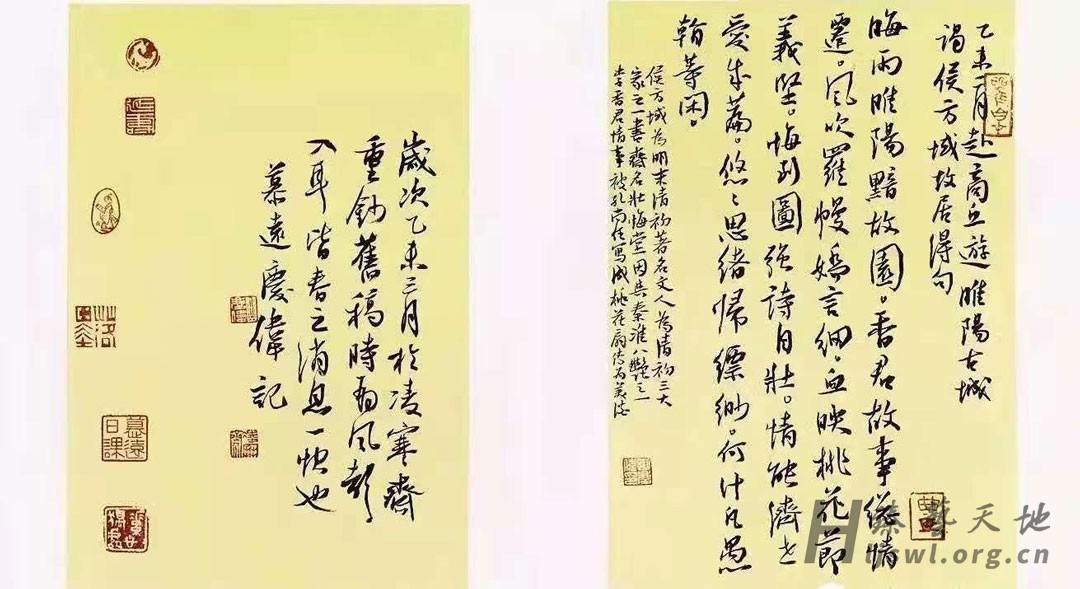 乙未二月赴商丘遊睢陽古城
謁侯方域故居得句
晦雨睢陽黯故園。香君故事總情
遷。風吹羅幔嬌言細。血映桃花節
義堅。悔到圖強詩自壯。情能濟世
愛成篇。悠〻思緒歸縹緲。何計凡愚
翰等閑。
侯方域為明末清初著名文人為清初三大
家之一書齋名壯悔堂因與秦淮八艷之一
李香君情事被孔尚任寫成桃花扇傳為美談
歲次乙未三月於凌寒齋
重鈔舊稿時 風
入耳皆春之消息一快也
慕遠慶偉記
慕遠日課
藝天地
swl.org.cn